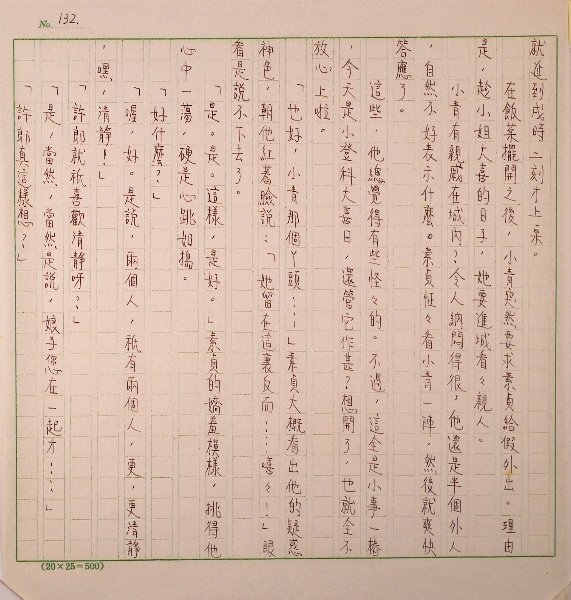 No. 132.
就延到戌時二刻才上桌。
在飯菜擺開之後，小青突然要求素貞給假外出。理由
是，趁小姐大喜的日子，她要進城看々親人。
小青有親戚在城內？令人納悶得很，他還是半個外人
，自然不好表示什麼。素貞怔々看小青一陣，然後就爽快
答應了。
這些　他總覺得有些怪々的。不過，這全是小事一樁
，今天是小登科大喜日，還管它作甚？想開了，也就全不
放心上啦。
「也好，小青那個丫頭……」素貞大概看出他的疑惑
神色，朝他紅著臉說：「她留在這裏反而……嘻々！」眼
看是說不下去了。
「是。是。這樣，是好。」素貞的嬌羞模樣，挑得他
心中一蕩，硬是心跳如搗。
「好什麼？」
「喔，好。是說，兩個人，祇有兩個人，更，更清靜
，嘿，清靜！」
「許郎就祇喜歡清靜呀？」
「是，當然，當然是說，娘子您在一起才……」
「許郎真這樣想？」
(20×25=500)